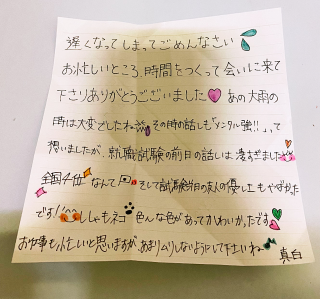 遅くなってしまってごめんなさい
お忙しいところ、時間をつくって会いに来て
下さりありがとうございました あの大雨の
時は大変でしたね その時の話しも「メンタル強!!」って
想いましたが、就職試験の前日の話しは凄すぎました
全国4位なんて そして試験当日の友人の優しさもやばかった
です! しゃもネコ 色んな色があってかわいかったです
お仕事も忙しいと思いますが、あまりムリしないようにして下さいね
真白